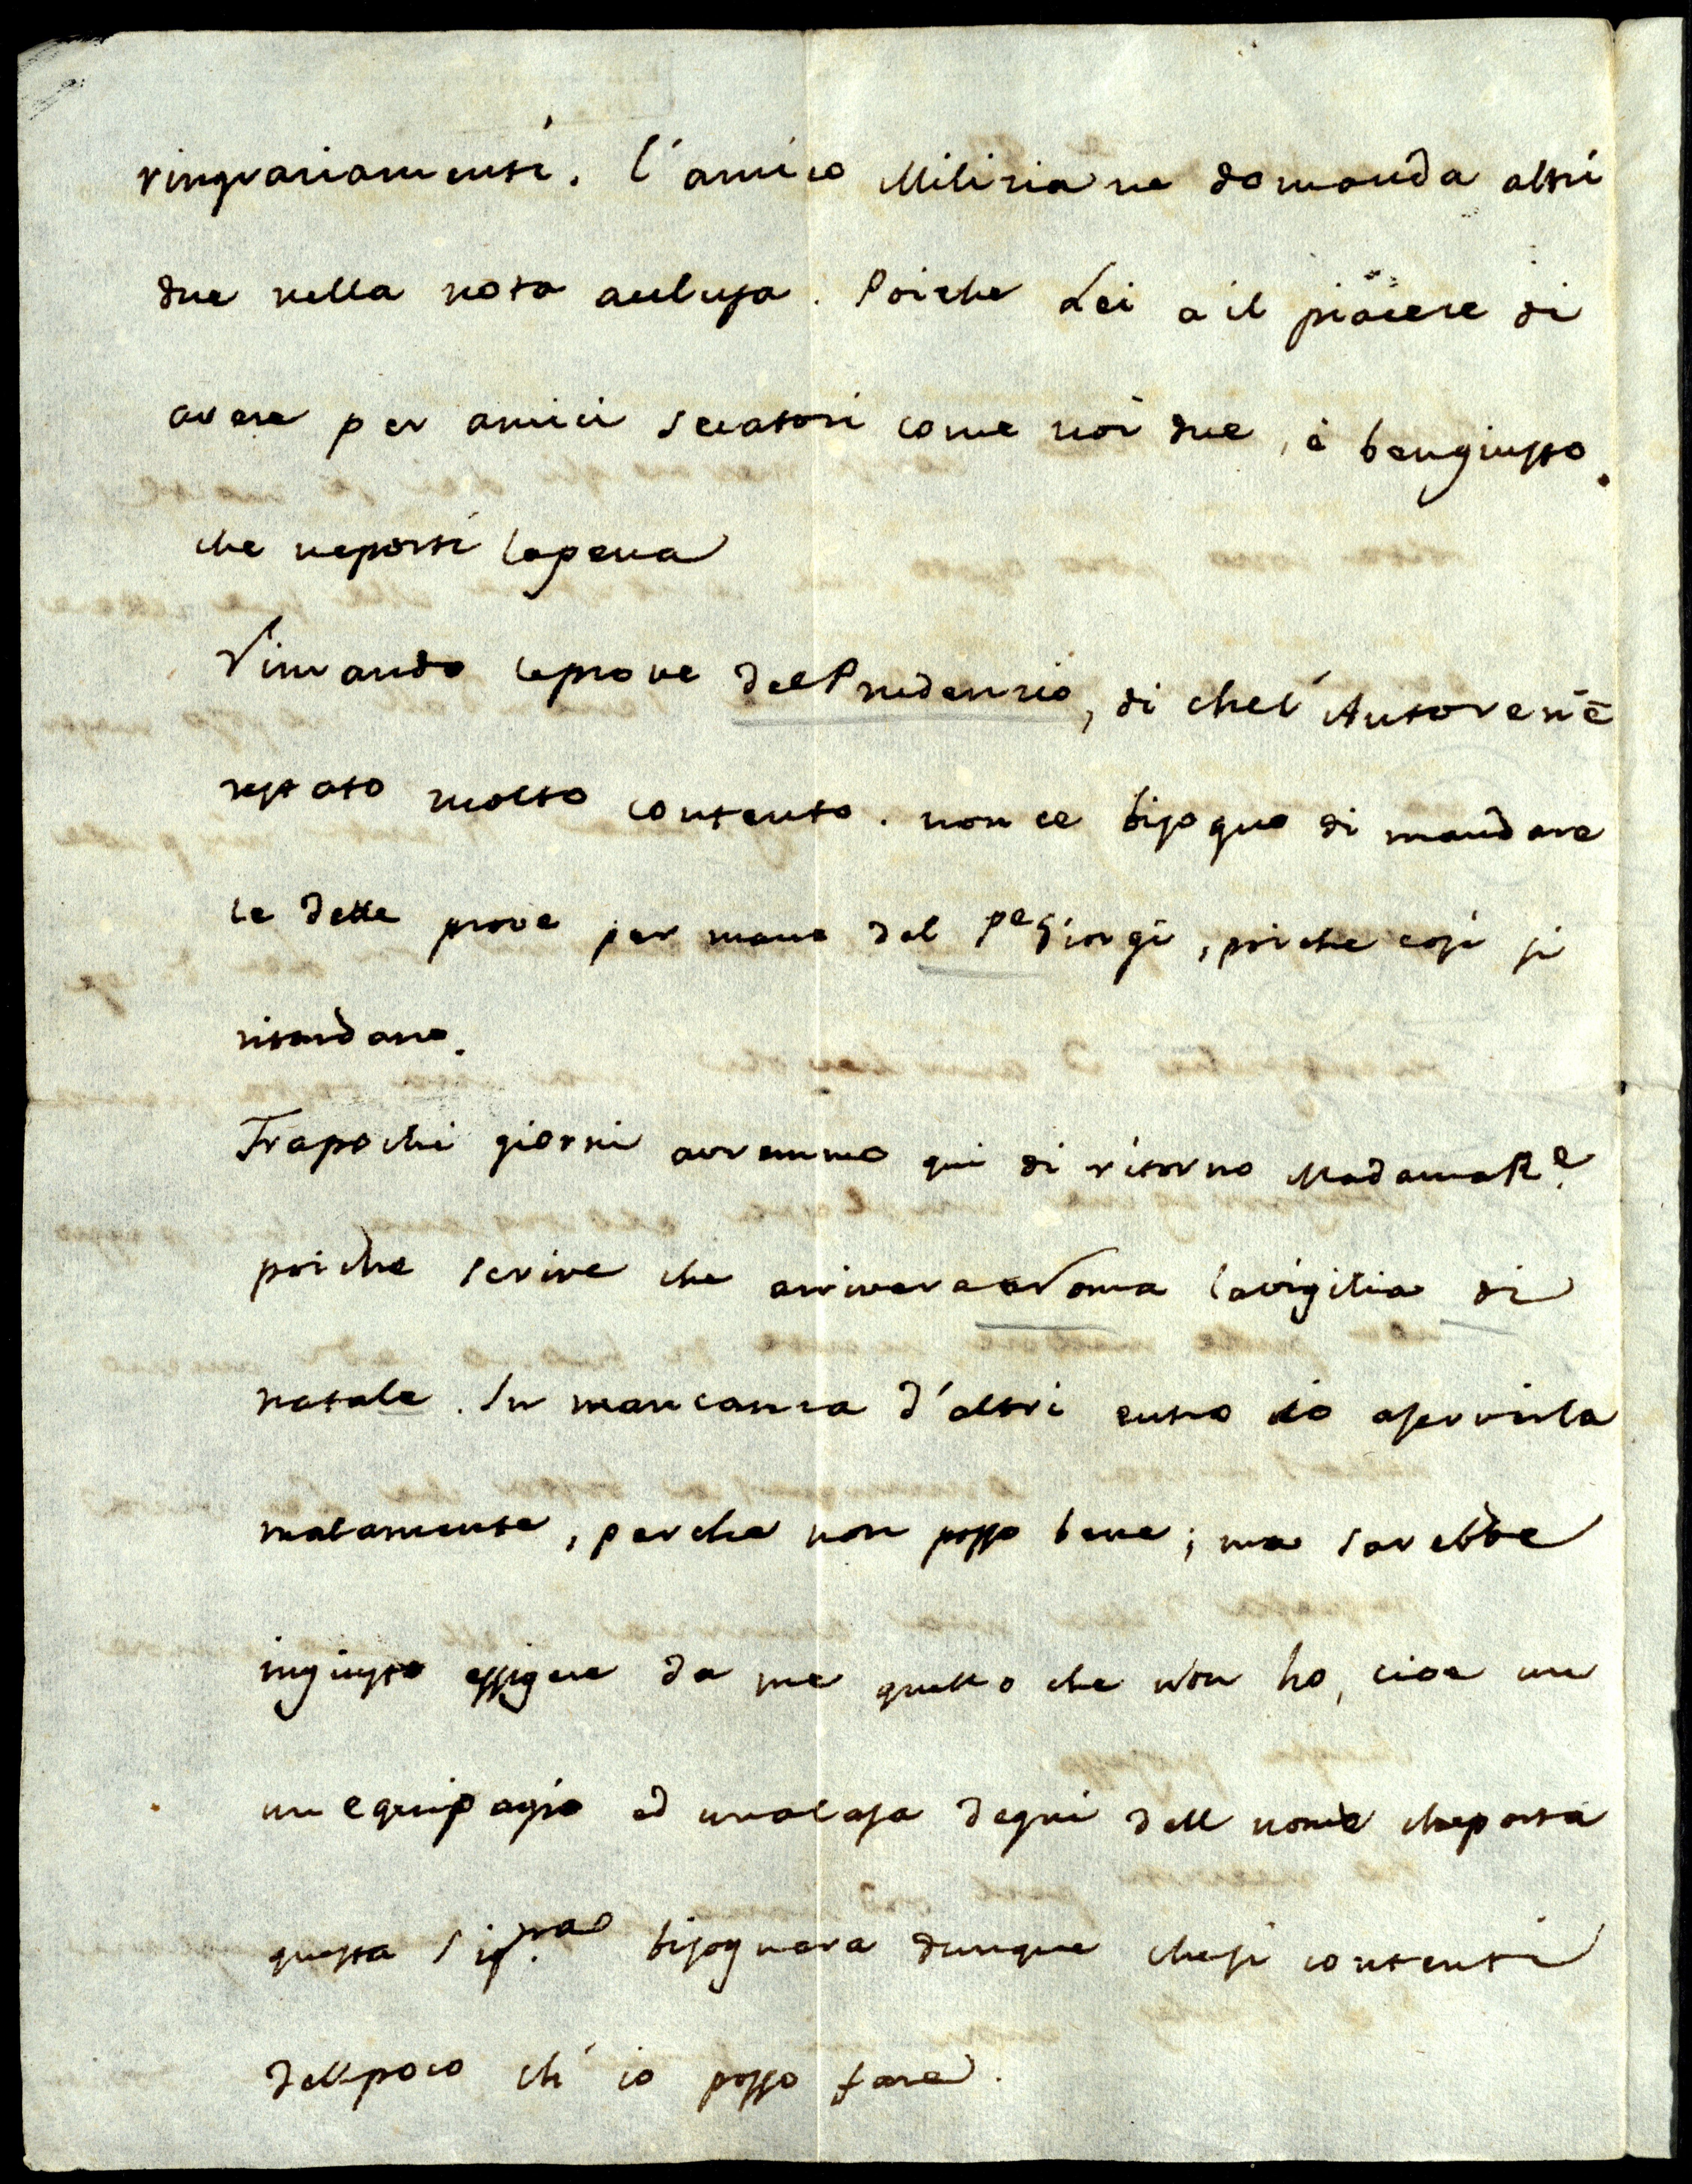 ringraziamenti. l'amico Milizia ne domanda altri
due nella nota acclusa. Poiche Lei a il piacere di
avere per amici secatori come noi due, è bengiusto
che neporti lapena
Rimando leprove del Prudenzio, di chel'Autore n'è
restato molto contento. non ce bisogno di mandare
le dette prove per mano del Pe Giorgi, poiche così si
ritardano.
Frapochi giorni avremmo qui di ritorno Madama Re.
poiche scrive che arrivera a Roma lavigilia di
natale. In mancanza d'altri entro io aservirla
malamente, perche non posso bene; ma sarebbe
ingiusto essigere da me quello che non ho, cioe un
un equipagio ed unacasa degni dell nome cheporta
questa Sigra. bisognera dunque chesi contenti
dellpoco ch'io posso fare.